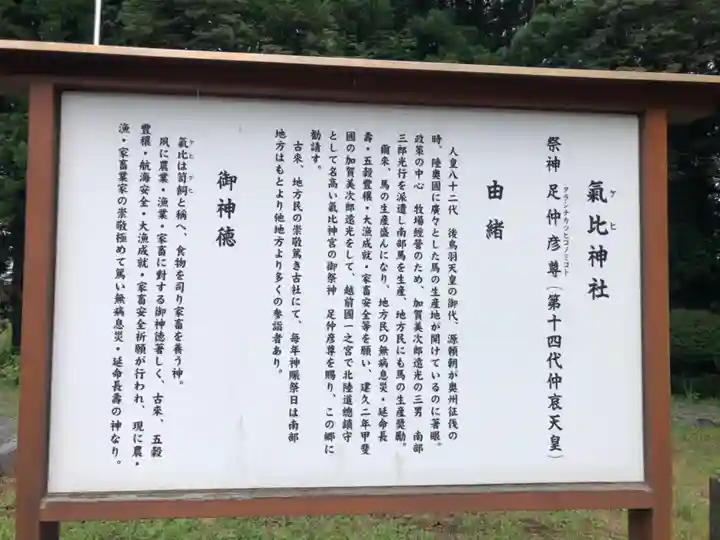 氣比神社
ケヒ
祭神 足仲彦尊(第十四代仲哀天皇)
タラシナカツヒコノミコト
由緒
人皇八十二代 後鳥羽天皇の御代、源頼朝が奥州征伐の
時、陸奥國に廣々とした馬の生産地が開けているのに著眼。
政策の中心 牧場經營のため、加賀美次郎遠光の三男 南部
三郎光行を派遣し南部馬を生産、地方民にも馬の生産奨励。
爾来、馬の生産盛んになり、地方民の無病息災・延命長
壽・五穀豊穰・大漁成就・家畜安全等を願い、建久二年甲斐
國の加賀美次郎遠光をして、越前國一之宮で北陸道總鎮守
として名高い氣比神宮の御祭神 足仲彦尊を賜り、この郷に
勧請す。
古来、地方民の崇敬篤き古社にて、毎年神賑祭日は南部
地方はもとより他地方より多くの參詣者あり。
御神徳
氣比は笥飼と稱へ、食物を司り家畜を養う神。
ケヒ ケヒ
夙に農業・漁業・家畜に對する御神徳著しく、古来、五穀
豊穰・航海安全・大漁成就・家畜安全祈願が行われ、現に農・
漁・家畜業家の崇敬極めて篤い無病息災・延命長壽の神なり。